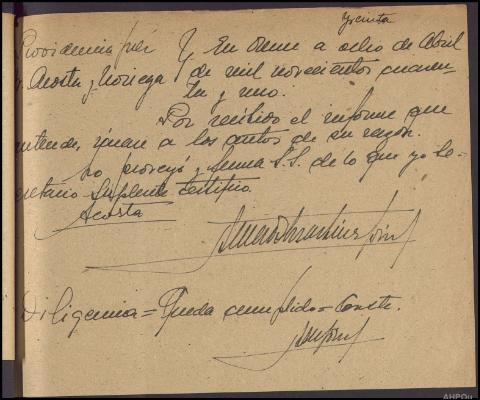 y treinta
Providencia juez } En Orense a ocho de Abril
Sr. Acosta y Noriega } de mil novecientos cuaren-
ta y uno.
Por recibido el informe que
antecede, únase a los autos de su razón.
Lo proveyó y firma S.S. de lo que yo Se-
cretario Suplente certifico.
Acosta
Diligencia = Queda cumplido = Conste.
AHPOu